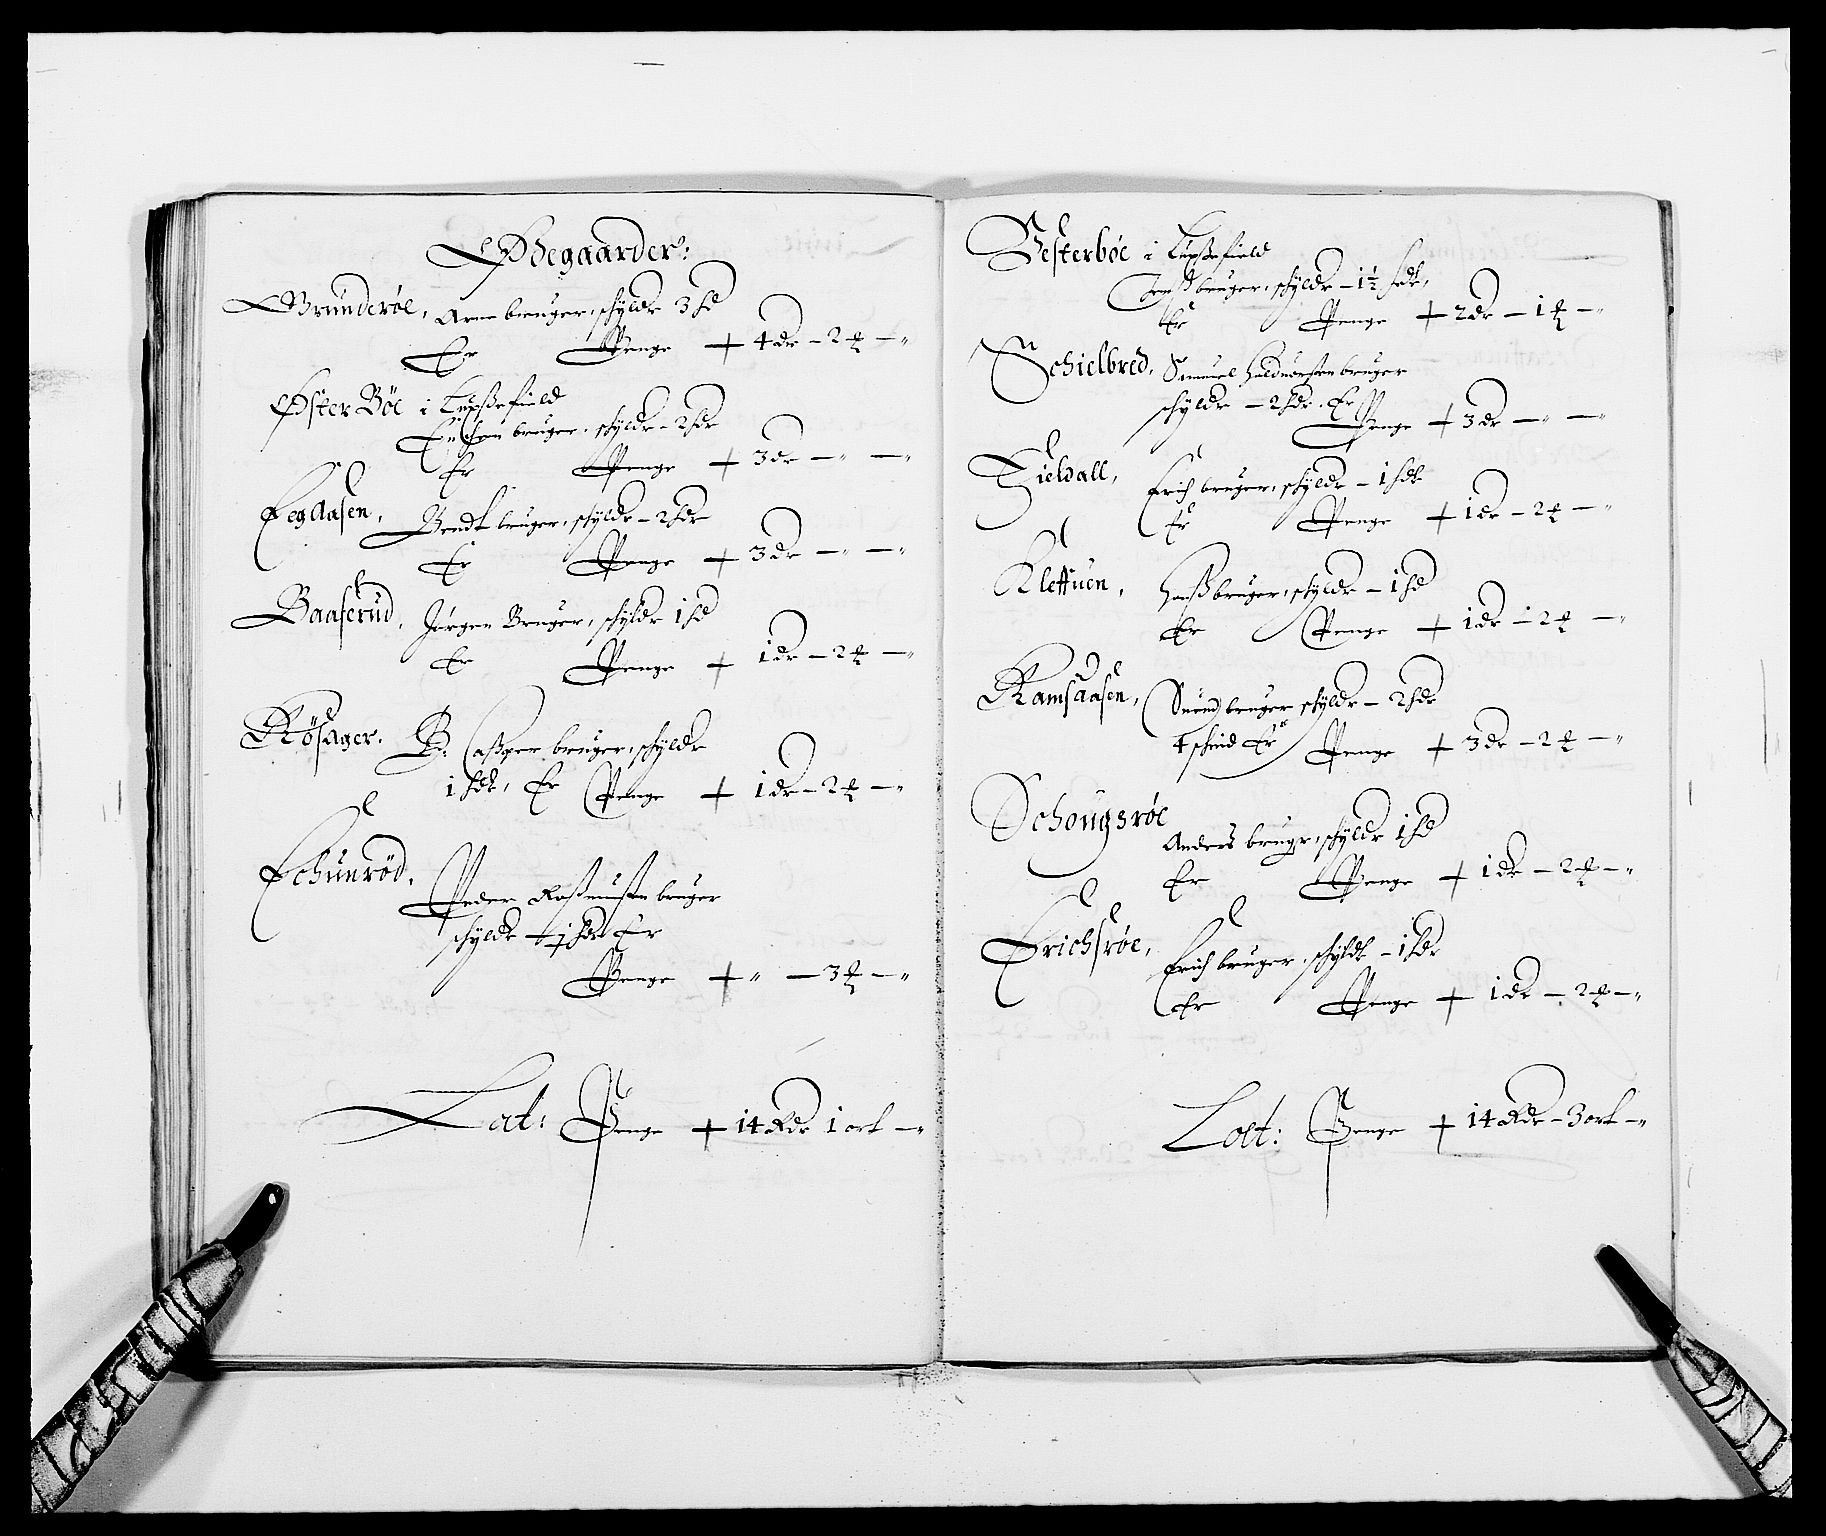 Ødegaarder:
Grunderøe, Arne bruger, schylder 3 sd
Er Penge + 4 dr – 2 ₻ – "
Øster Bøe i Luxefield
bruger, schylder – 2 sdr
Er Penge + 3 dr – " – "
Eegaasen, Bendt bruger, schylder – 2 sdr
Er Penge + 3 dr – " – "
Baaserud, Jørgen Bruger, schylder 1 sd
Er Penge + 1 dr – 2 ₻ – "
Røsager. Casper bruger, schylder
1 sdr, Er Penge + 1 dr – 2 ₻ – "
Echunrød, Peder Rasmusen bruger
schylder Er
Penge + " – 3 ₻ – "
Lat: Penge + 14 Rdr 1 ort – "
Vesterbøe i Luxefield
bruger, schylder – 1½ sdr,
Er Penge + 2 dr – 1 ₻ – "
Schielbred, Samuel Haldnorsen bruger
schylder – 2 sdr. Er
Penge + 3 dr – " – "
Gieldall, Erich bruger, schylder – 1 sdr
Er Penge + 1 dr – 2 ₻ – "
Kleffuen, Hanß bruger, schylder – 1 sd
Er Penge + 1 dr – 2 ₻ – "
Ramsaasen, Suend bruger schylder – 2 sdr
4 schind Er Penge + 3 dr – 2 ₻ – "
Schougsrøe
Anders bruger, schylder 1 sd
Er Penge + 1 dr – 2 ₻ – "
Erichsrøe, Erich bruger, schylder – 1 sdr
Er Penge + 1 dr – 2 ₻ – "
Lat: Penge + 14 Rdr – 3 ort – "